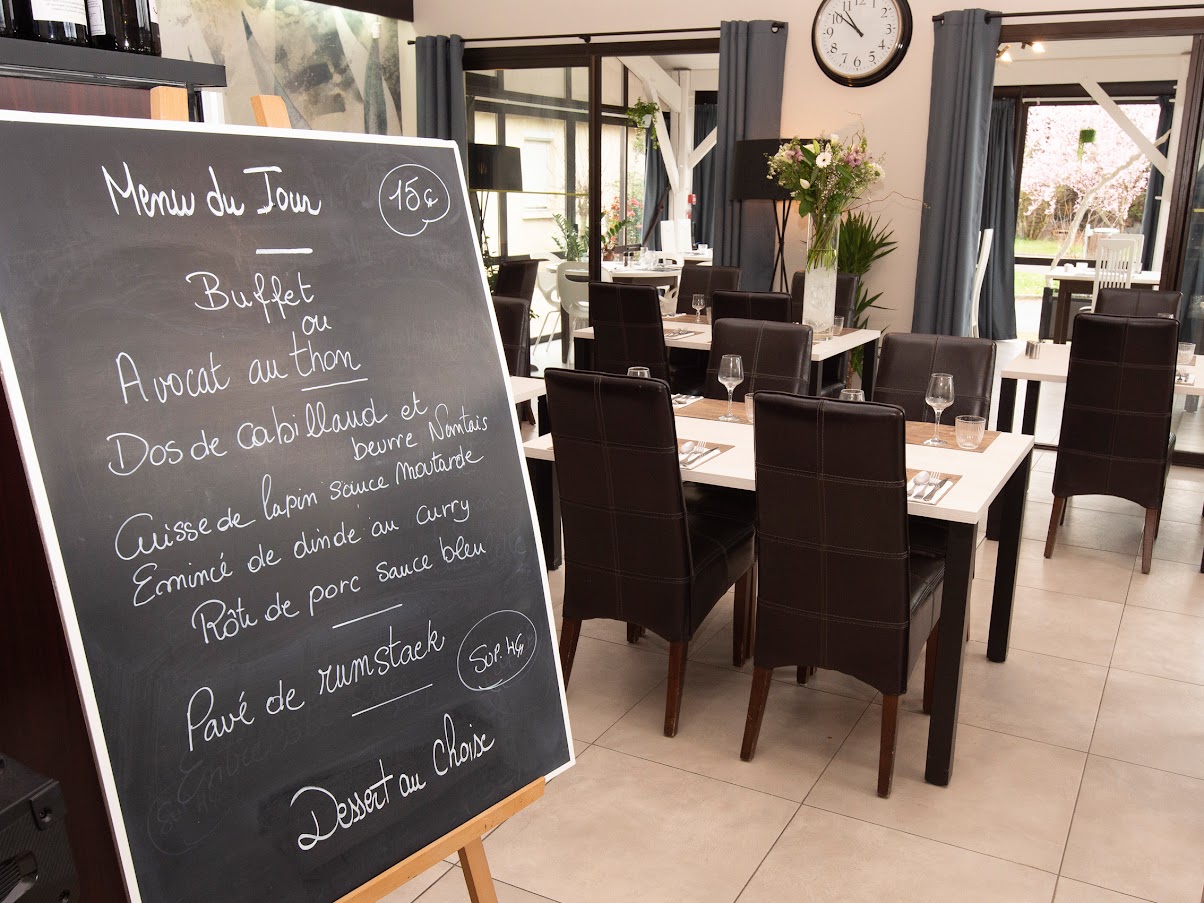 Menu du Jour
15€
Buffet
ou
Avocat au thon
Dos de cabillaud et
beurre Nantais
Cuisse de lapin sauce Moutarde
Emincé de dinde au curry
Rôti de porc sauce bleu
Pavé de rumstaek
SUP. 4€
Dessert au choix
12
11
10
9
8
7
6
5
4
3
2
1